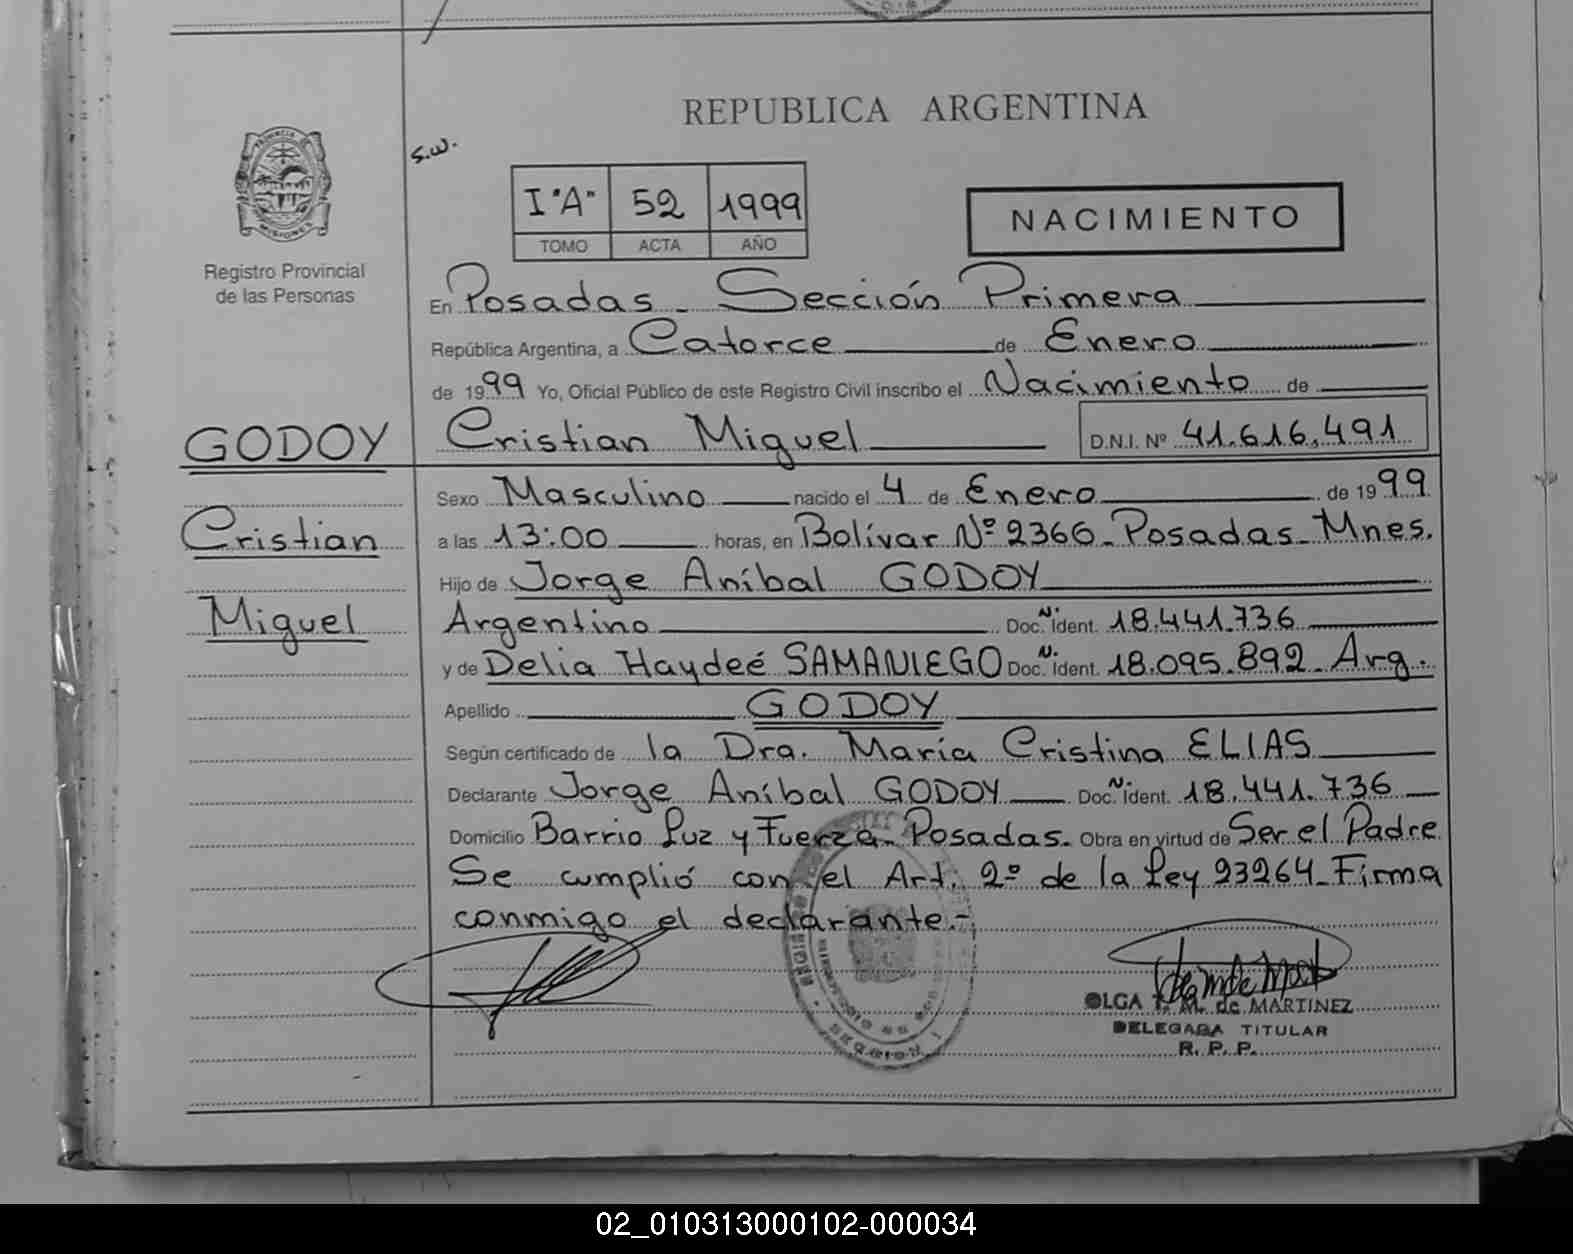 REPUBLICA ARGENTINA
s.w.
PROVINCIA DE
MISIONES
Registro Provincial
de las Personas
I "A" 52 1999
TOMO ACTA AÑO
NACIMIENTO
En Posadas - Sección Primera
República Argentina, a Catorce de Enero
de 1999 Yo, Oficial Público de este Registro Civil inscribo el Nacimiento de
GODOY
Cristian Miguel D.N.I. Nº 41.616.491
Sexo Masculino nacido el 4 de Enero de 1999
Cristian
a las 13:00 horas, en Bolívar Nº 2366 - Posadas - Mnes.
Hijo de Jorge Aníbal GODOY
Miguel
Argentino Doc. N. Ident. 18.441.736
y de Delia Haydeé SAMANIEGO Doc. N. Ident. 18.095.892 - Arg.
Apellido GODOY
Según certificado de la Dra. María Cristina ELIAS
Declarante Jorge Aníbal GODOY Doc. N. Ident. 18.441.736
Domicilio Barrio Luz y Fuerza - Posadas. Obra en virtud de Ser el Padre
Se cumplió con el Art. 2º de la Ley 23264 - Firma
conmigo el declarante.-
OLGA de MARTINEZ
DELEGADA TITULAR
R. P. P.
02_010313000102-000034